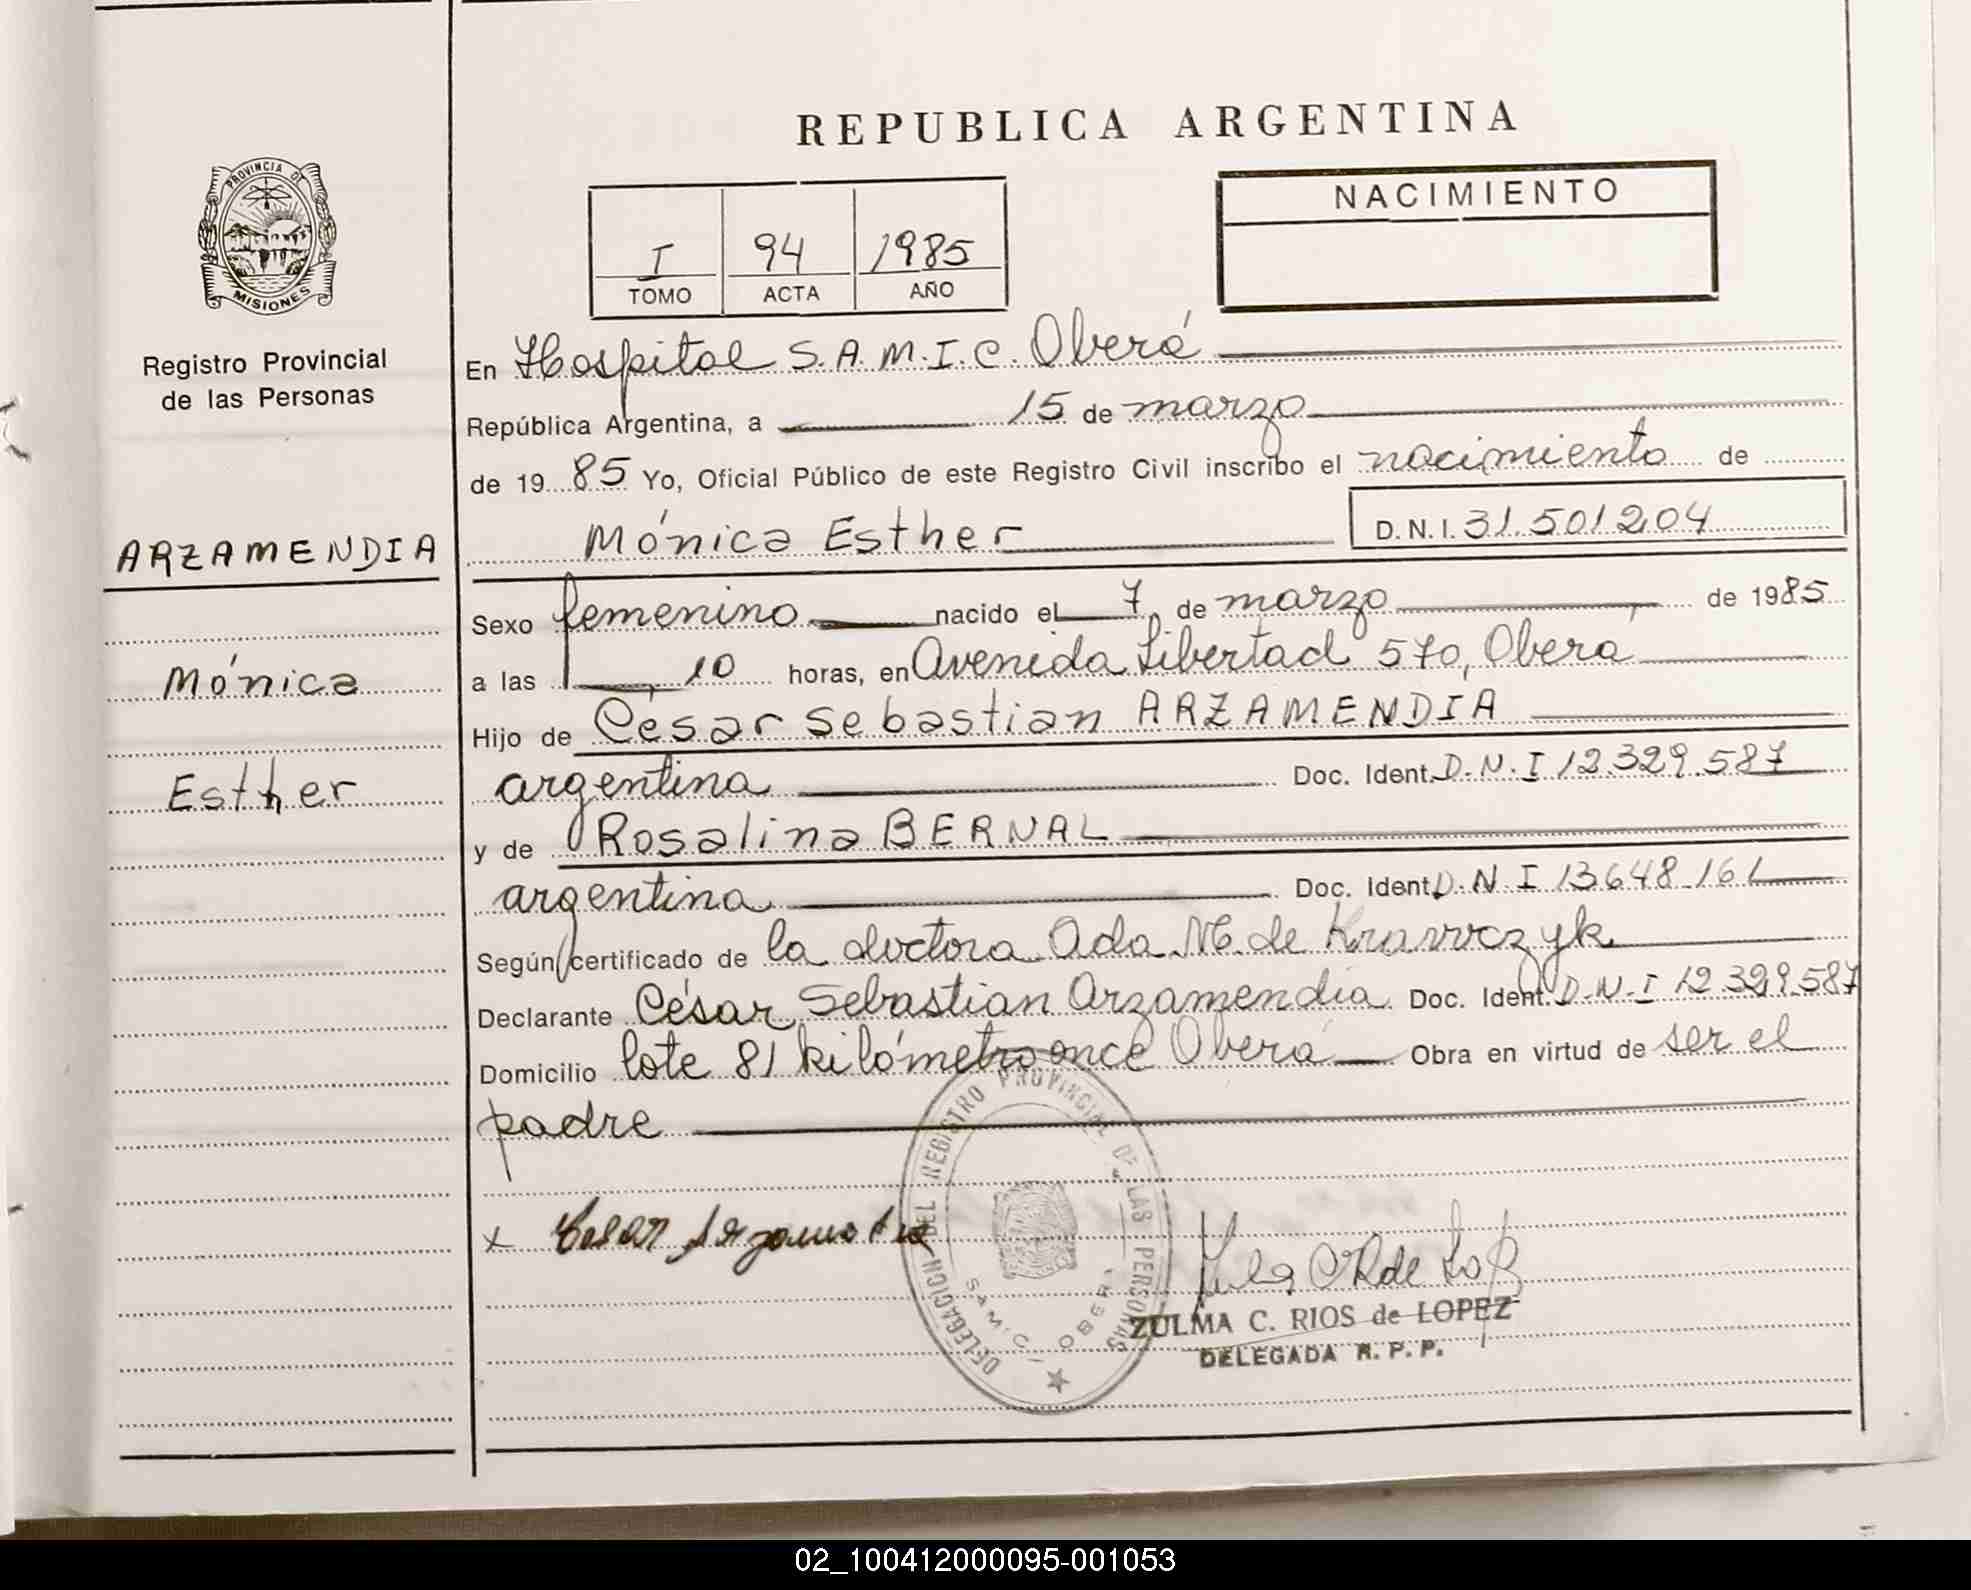 REPUBLICA ARGENTINA
PROVINCIA DE
MISIONES
Registro Provincial
de las Personas
ARZAMENDIA
Mónica
Esther
I 94 1985
TOMO ACTA AÑO
NACIMIENTO
En Hospital S.A.M.I.C. Oberá
República Argentina, a 15 de marzo
de 1985 Yo, Oficial Público de este Registro Civil inscribo el nacimiento de
Mónica Esther D.N.I. 31.501204
Sexo femenino nacido el 7 de marzo de 1985
a las 10 horas, en Avenida Libertad 570, Oberá
Hijo de César Sebastian ARZAMENDIA
argentina Doc. Ident. D.N.I 12.329.587
y de Rosalina BERNAL
argentina Doc. Ident. D.N.I 13648.161
Según certificado de la doctora Ada M. de Krawczyk
Declarante César Sebastian Arzamendia Doc. Ident. D.N.I 12.329.587
Domicilio lote 81 kilómetro once Oberá Obra en virtud de ser el
padre
x Cesar Arzamendia
DELEGACION DEL REGISTRO PROVINCIAL DE LAS PERSONAS
S.A.M.I.C. OBERA
ZULMA C. RIOS de LOPEZ
DELEGADA R. P. P.
02_100412000095-001053